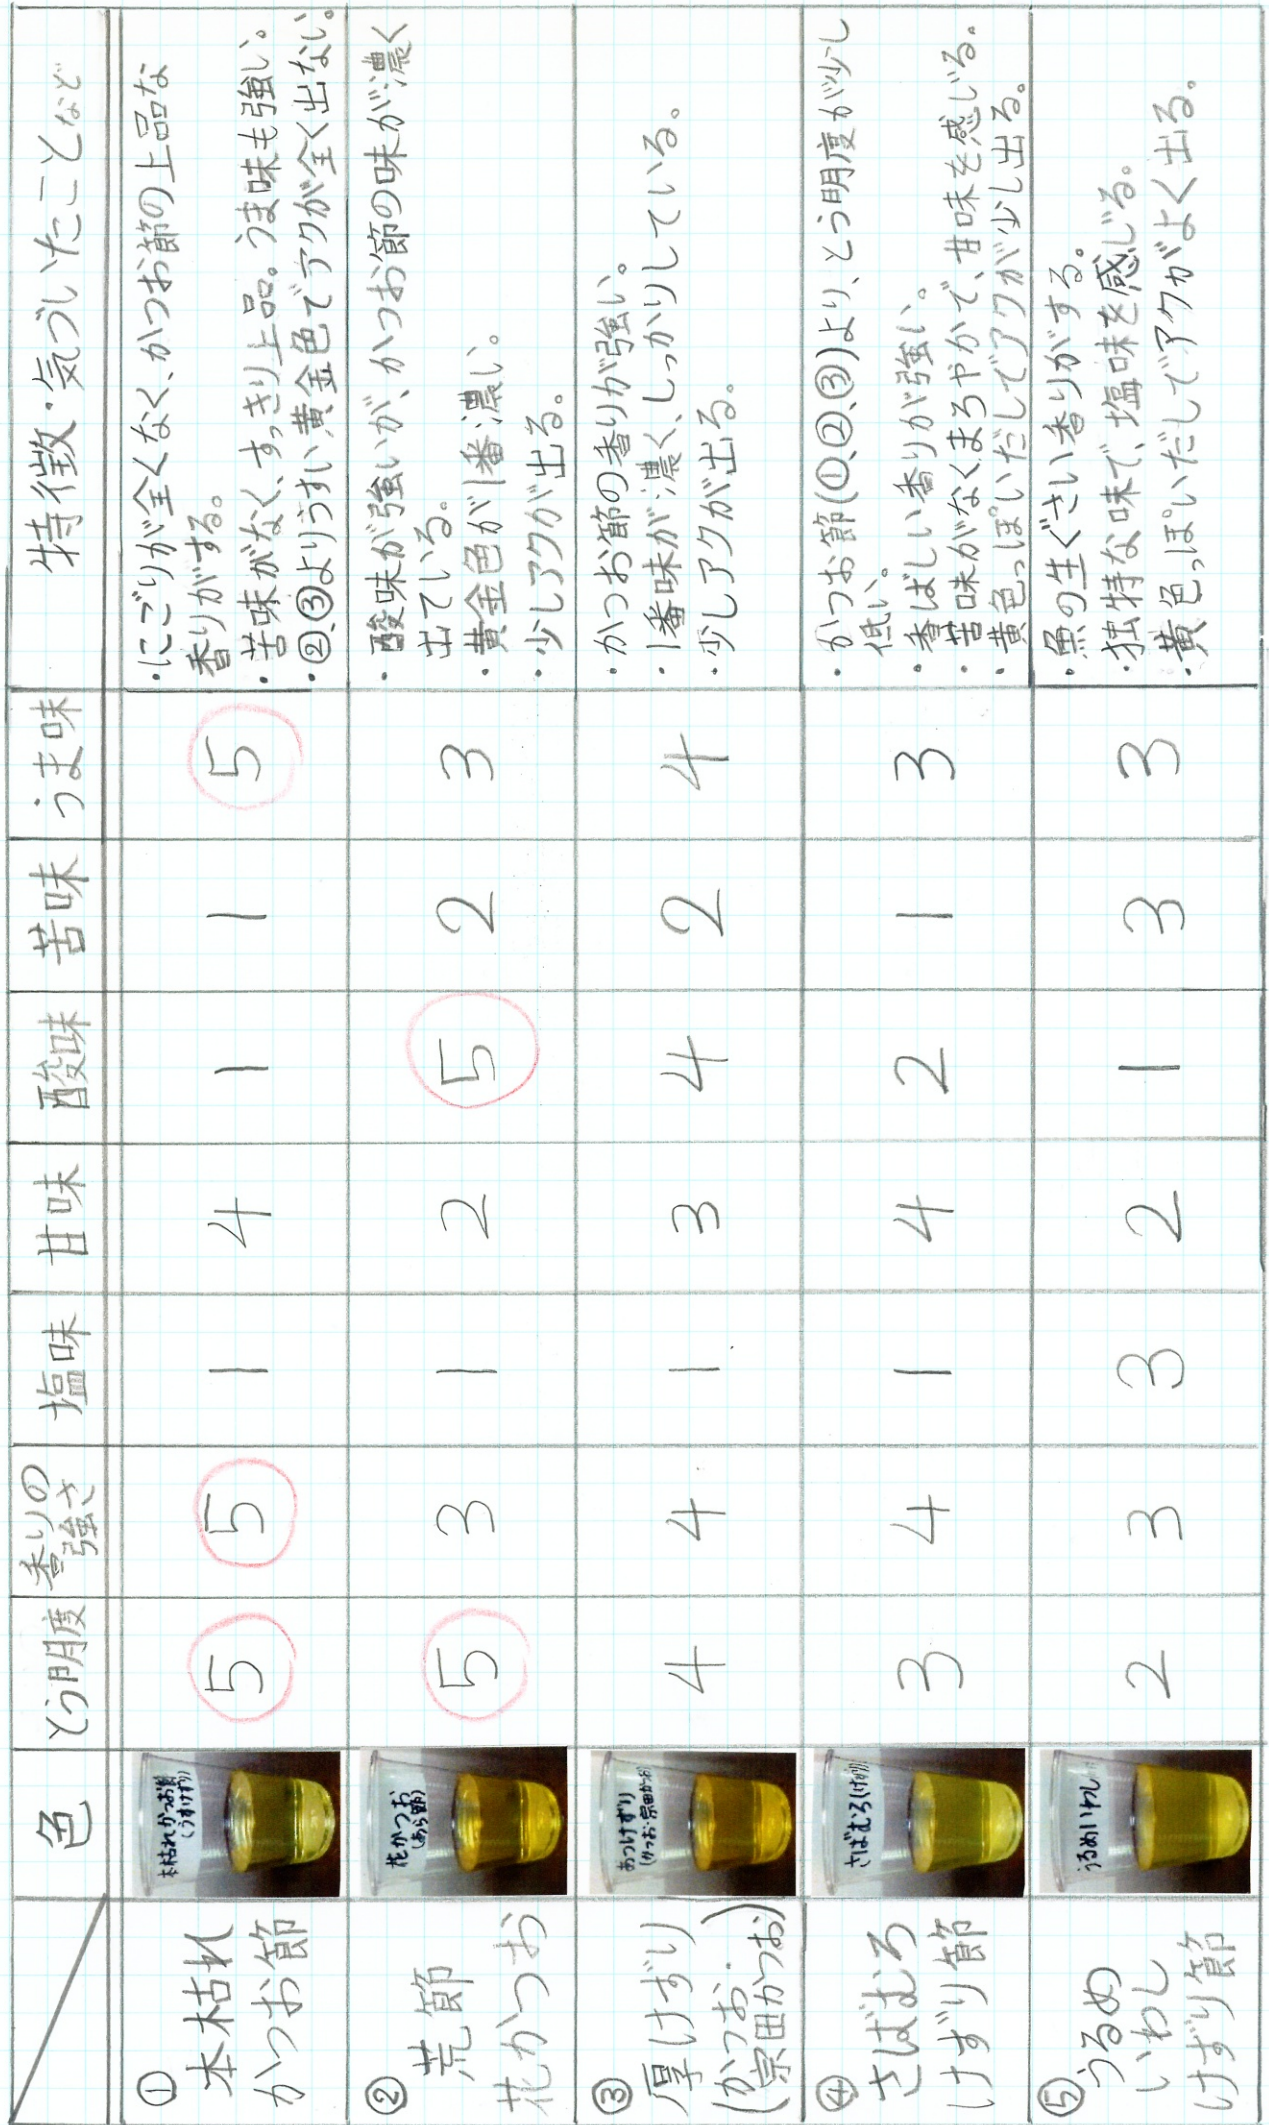 色
とう明度
香りの
強さ
塩味
甘味
酸味
苦味
うま味
特徴・気づいたことなど
①
本枯れ
かつお節
本枯れかつお節
(うすけずり)
5
5
1
4
1
1
5
・にごりが全くなく、かつお節の上品な
香りがする。
・苦味がなく、すっきり上品。うま味も強い。
・②、③よりうすい黄金色でアクが全く出ない。
②
荒節
花かつお
花かつお
(あら節)
5
3
1
2
5
2
3
・酸味が強いが、かつお節の味が濃く
出ている。
・黄金色が1番濃い。
・少しアクが出る。
③
厚けずり
(かつお・
宗田かつお)
あつけずり
(かつお・宗田かつお)
4
4
1
3
4
2
4
・かつお節の香りが強い。
・1番味が濃く、しっかりしている。
・少しアクが出る。
④
さばむろ
けずり節
さばむろ(けずり)
3
4
1
4
2
1
3
・かつお節(①、②、③)より、とう明度が少し
低い。
・香ばしい香りが強い。
・苦味がなくまろやかで、甘味を感じる。
・黄色っぽいだしでアクが少し出る。
⑤
うるめ
いわし
けずり節
うるめいわし
2
3
3
2
1
3
3
・魚の生ぐさい香りがする。
・独特な味で、塩味を感じる。
・黄色っぽいだしでアクがよく出る。